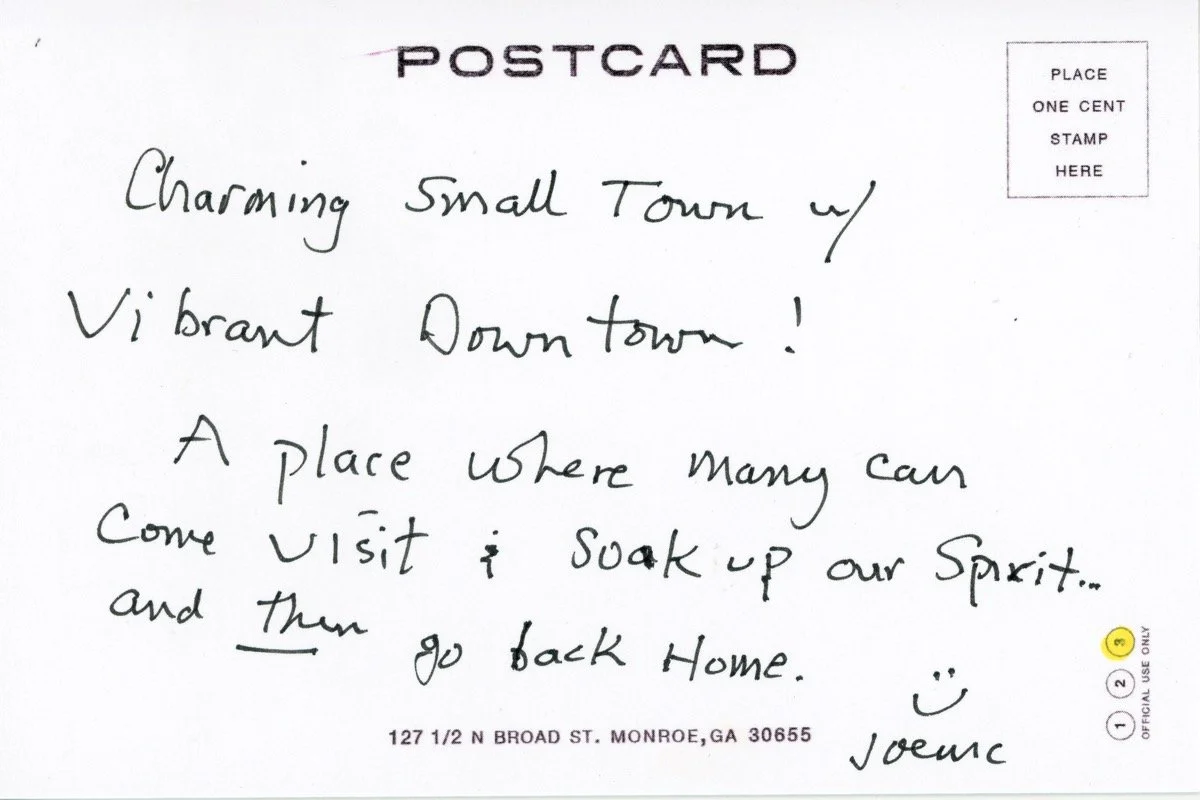 POSTCARD
PLACE
ONE CENT
STAMP
HERE
Charming Small Town w/
Vibrant Downtown!
A place where many can
Come visit & Soak up our Spirit...
and then go back Home.
127 1/2 N BROAD ST. MONROE, GA 30655
1 2 3
OFFICIAL USE ONLY